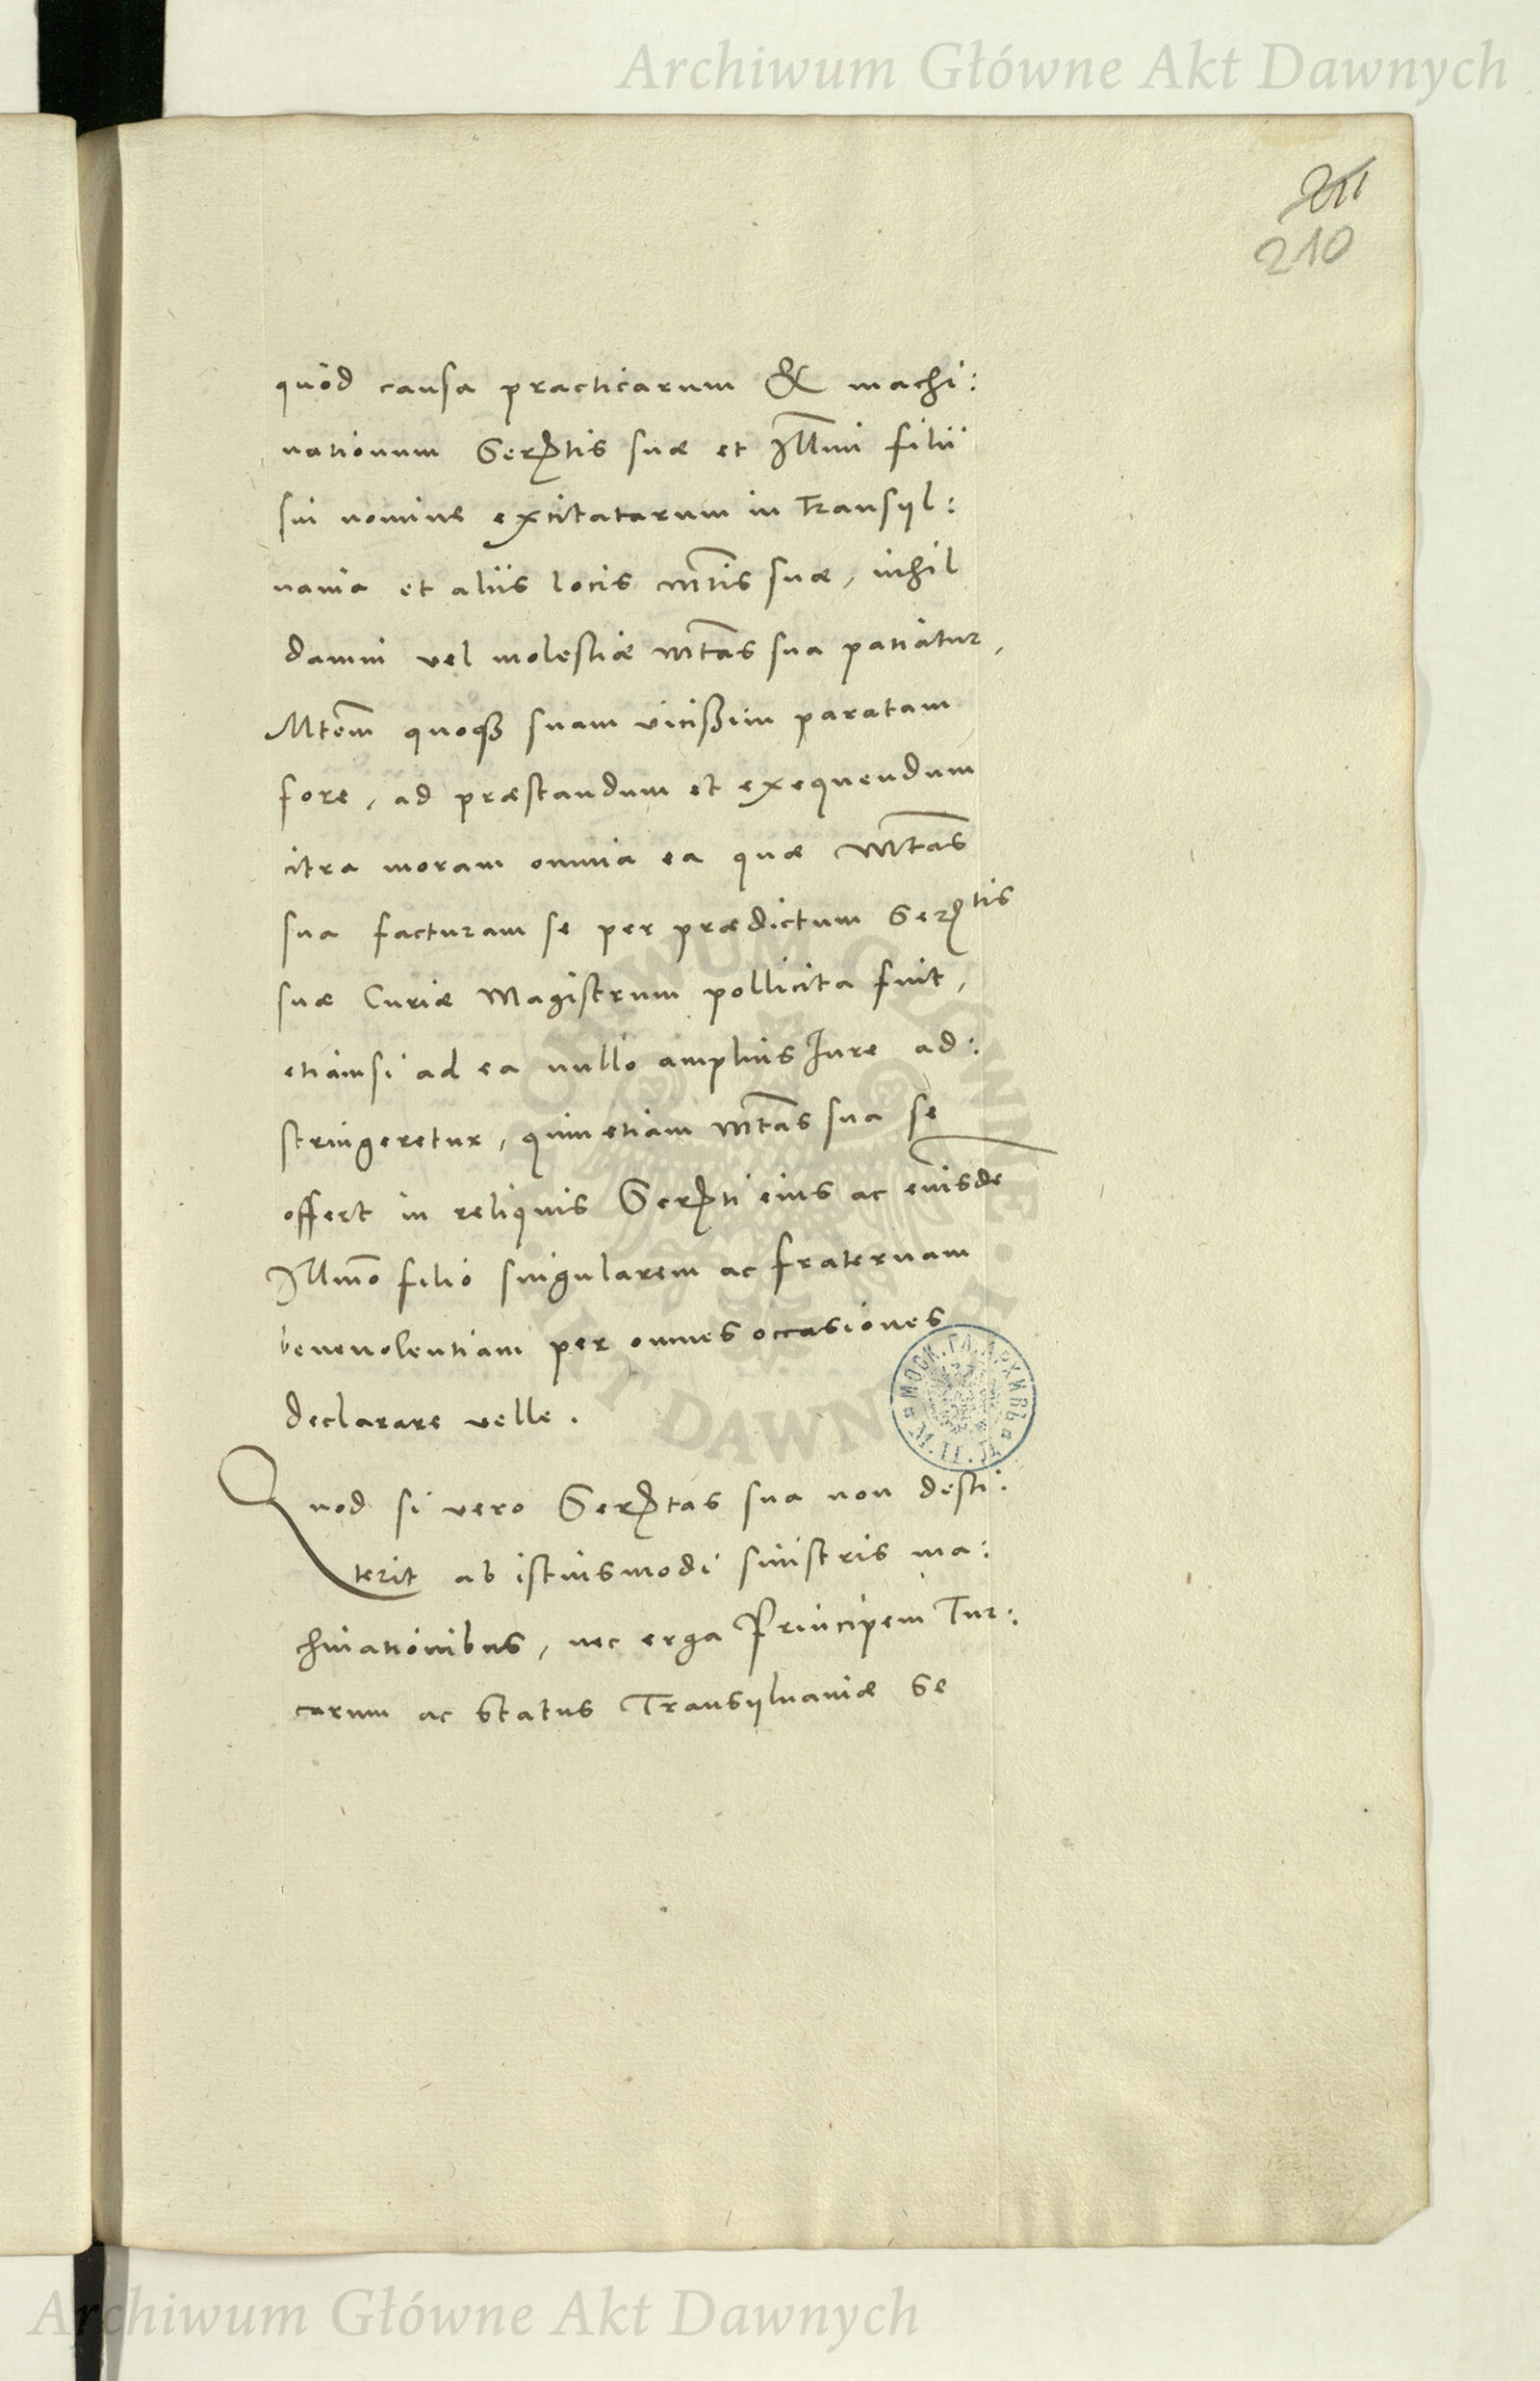 Archiwum Główne Akt Dawnych
211
210
quòd causa practicarum & machi:
nationum Serttis suæ et Illmi filii
sui nomine excitatarum in Transyl:
nania et aliis locis Mttis suæ, nihil
damni vel molestiæ Mtas sua patiatur,
Mtem quoqz suam vicißim paratam
fore, ad præstandum et exequendum
citra moram omnia ea quæ Mtas
sua facturam se per prædictum Sertis
suæ Curiæ Magistrum pollicita fuit,
etiamsi ad ea nullo amplius Iure ad:
stringeretur, quinetiam Mtas sua se
offert in reliquis Serti eius ac eiusdē
Illmo filio singularem ac fraternam
beneuolentiam per omnes occasiones
declarare velle.
Quod si vero Sertas sua non desti:
terit ab istiusmodi sinistris ma:
chinationibus, nec erga Principem Tur:
carum ac Status Transyluaniæ se
МОСК. ГЛ. АРХИВЪ М. И. Д.
Archiwum Główne Akt Dawnych